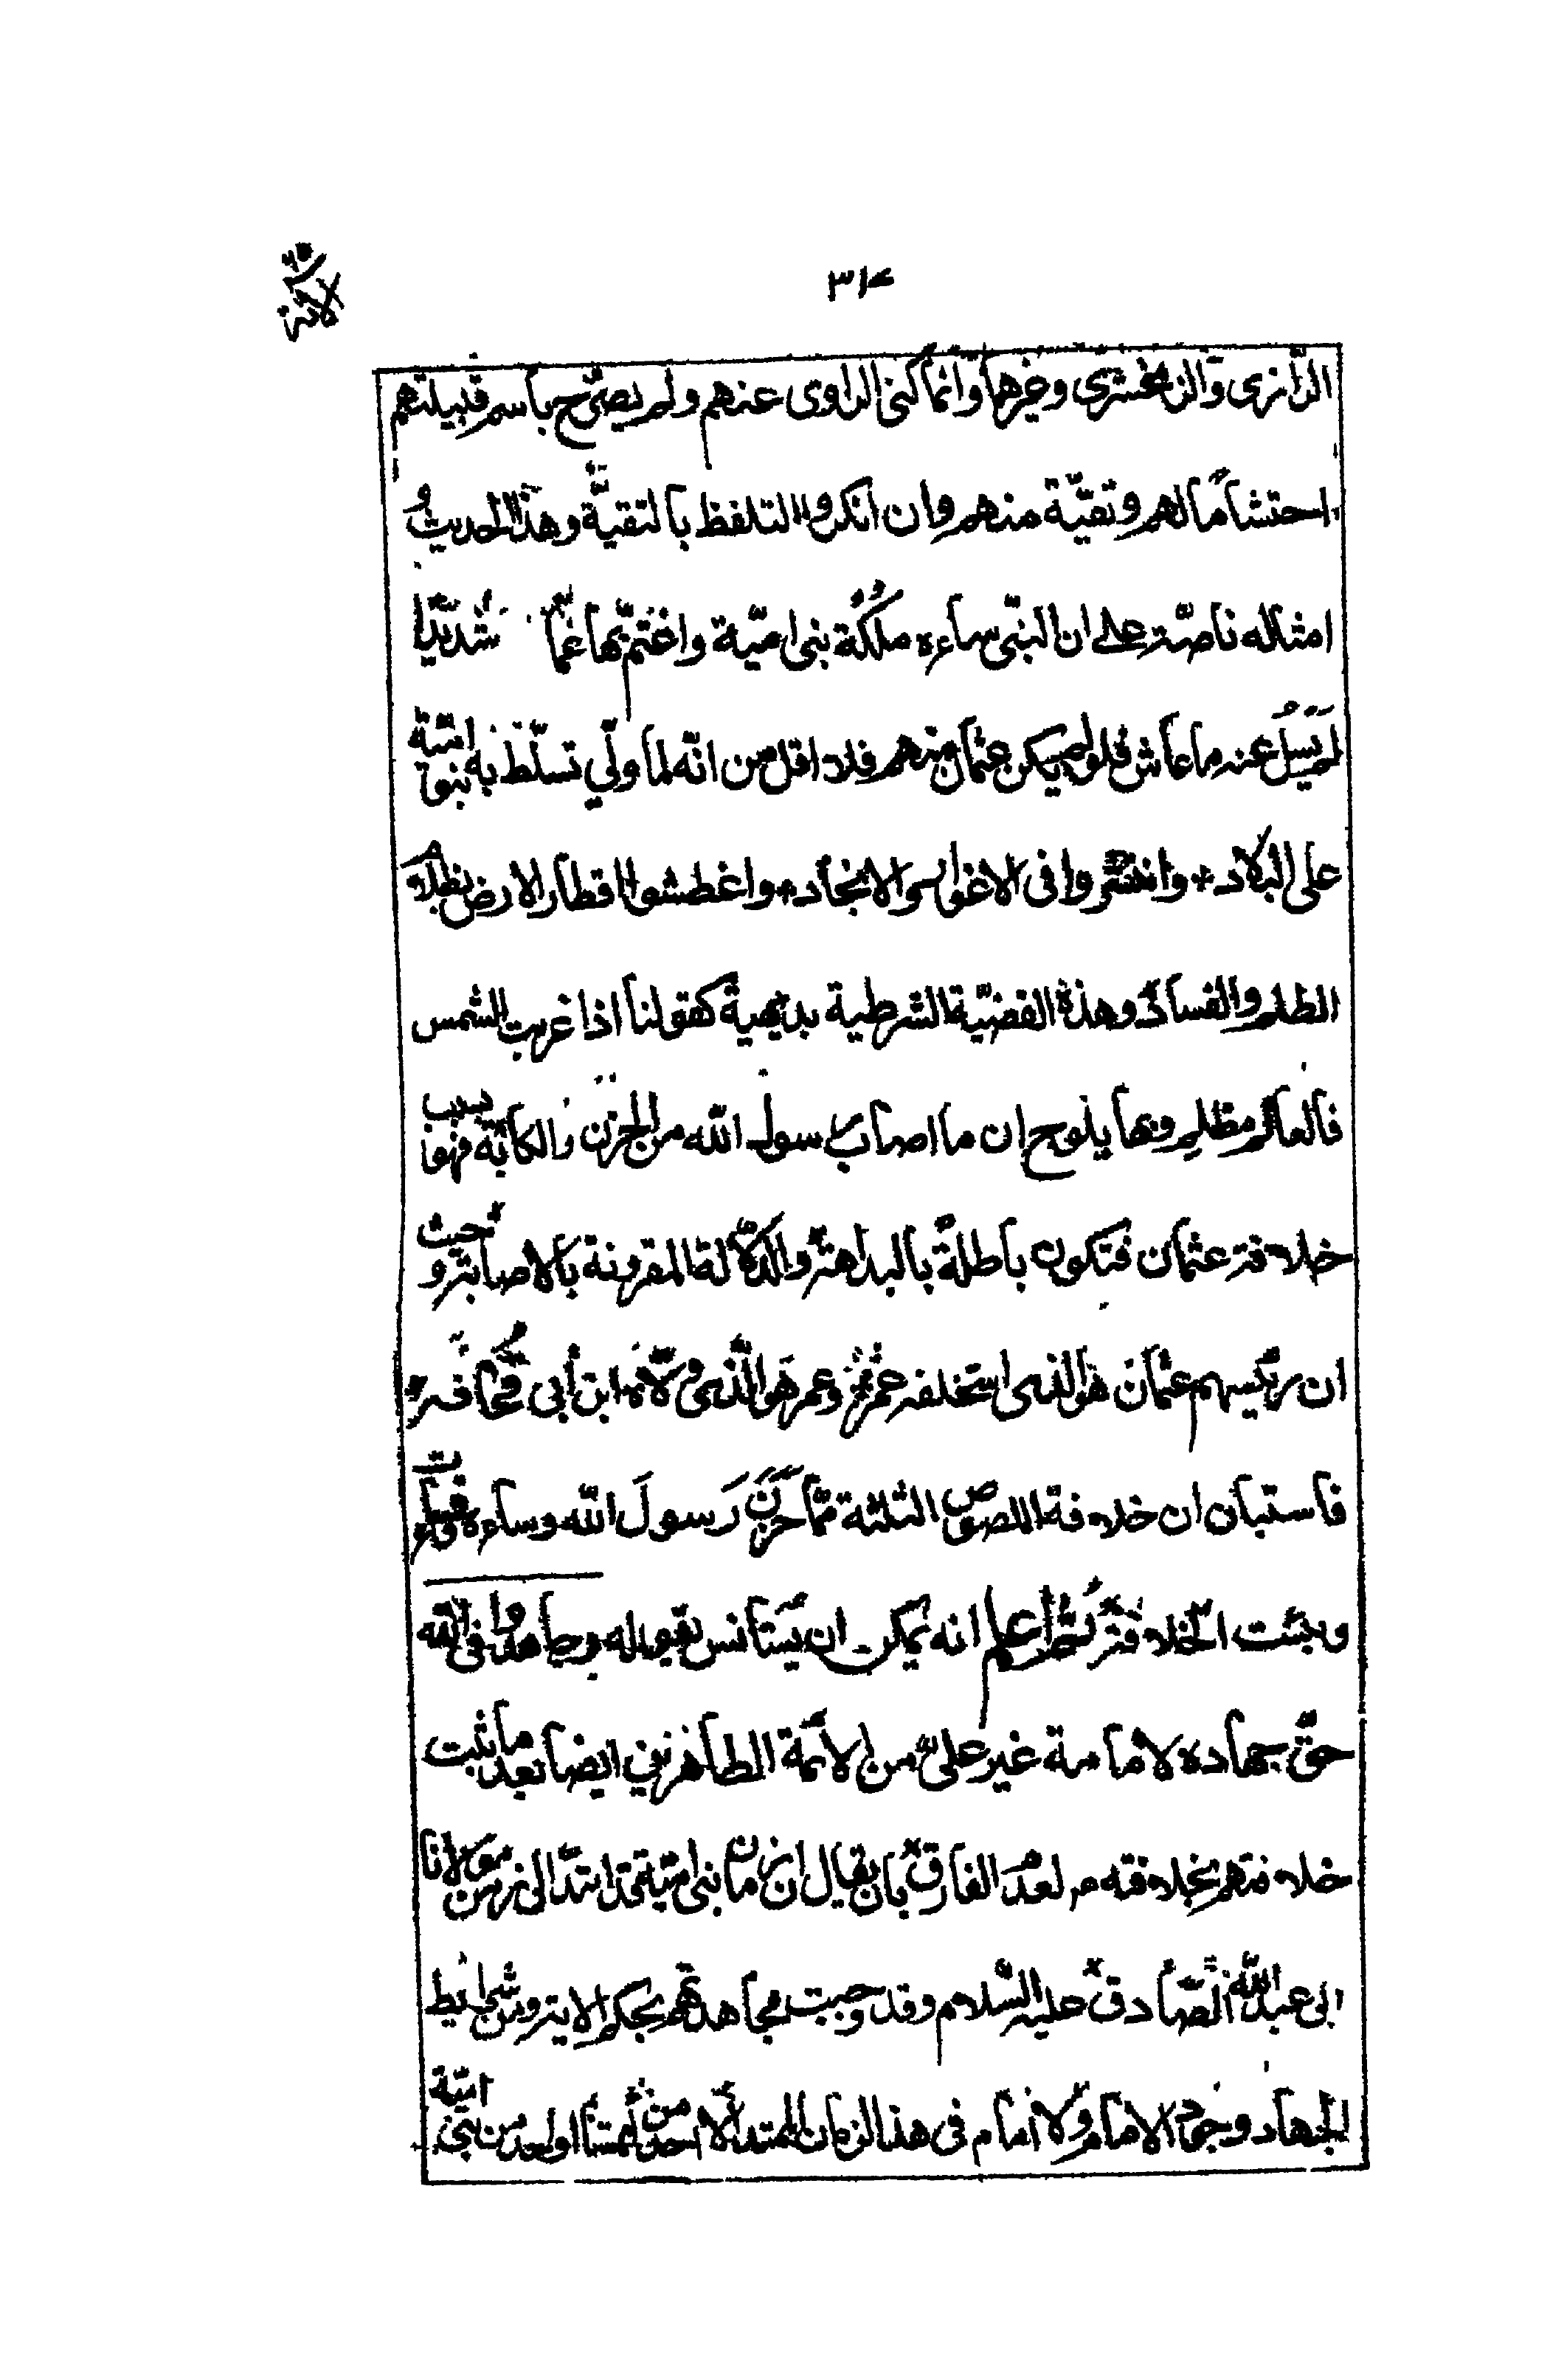 ٣١٤
الرّازي والزمخشري وغيرهما وانّما كنى الراوى عنهم ولم يصرّح باسم قبيلتهم
احتشاما لهم وتقيّة منهم وان انكروا التلفظ بالتقيّة وهذا الحديث و
امثاله ناصّة على ان النبّى ساءه ملكة بنى اميّة واغتم بها غمّا شديدًا
لم يسل عنه ما عاش فلو لم يكن عثمان منهم فلا اقل من انّه لما ولّي تسلّط به بنو اميّة
على البلاد وانتشروا فى الاغوار والانجاد واغطشوا اقطار الارض بظلمة
الظلم والفساد وهذه القضيّة الشرطية بديهية كقولنا اذا غربت الشمس
فالعالم مظلم وبها يلوح ان ما اصاب رسول الله من الحزن والكآبة فهو بسبب
خلافة عثمان فتكون باطلة بالبداهة والدّلالة المقرونة بالاصابة وحيث
ان رئيسهم عثمان هو الذى استخلفه عمر وعمر هو الّذى ولّاه ابن أبى قحافة
فاستبان ان خلافة اللصوص الثلثة ممّا حزن رسول الله وساءه
وبئت الخلافة ثمّ اعلم انه يمكن ان يستأنس بقوله وجاهدوا فى الله
حقّ جهاده لامامة غير علىّ من الأئمة الطاهرين ايضا بعد ما ثبت
خلافتهم بخلافته لعدم الفارق بان يقال ان زمان بنى اميّة قد امتدّ الى زمن مولانا
ابى عبد الله الصّادق عليه السّلام وقد وجبت مجاهدتهم بحكم الاية ومن شرايط
الجهاد وجود الامام ولا امام فى هذا الزمان الممتد الّا احد من أئمتنا او احد من بنى اميّة